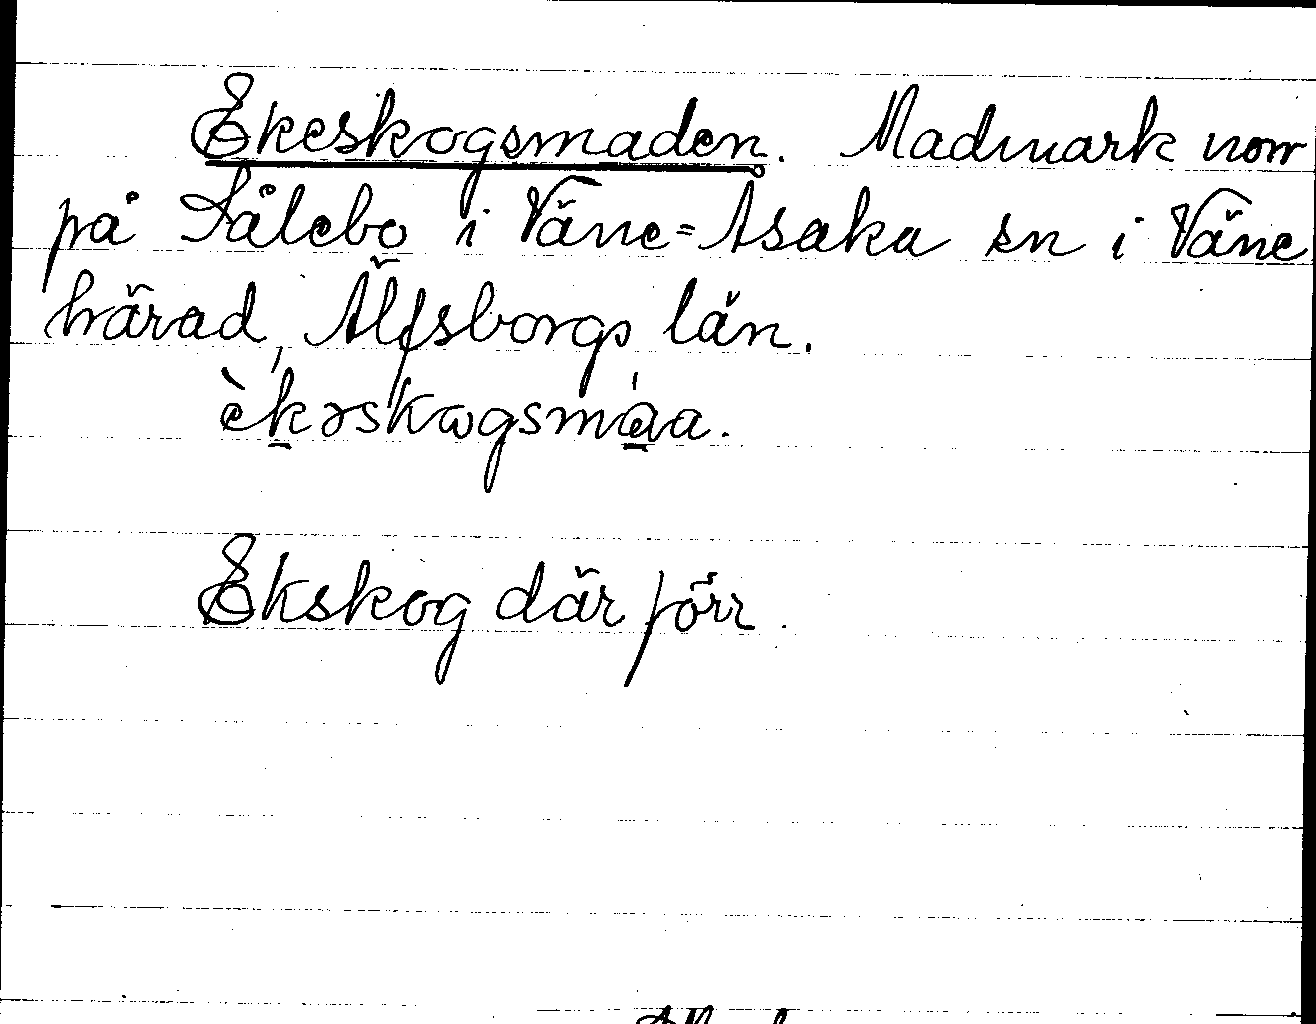 Ekeskogsmaden. Madmark norr
på Sålebo i Väne=Åsaka sn i Väne
härad, Älfsborgs län.
èkəskωgsmáa.
Ekskog där förr.